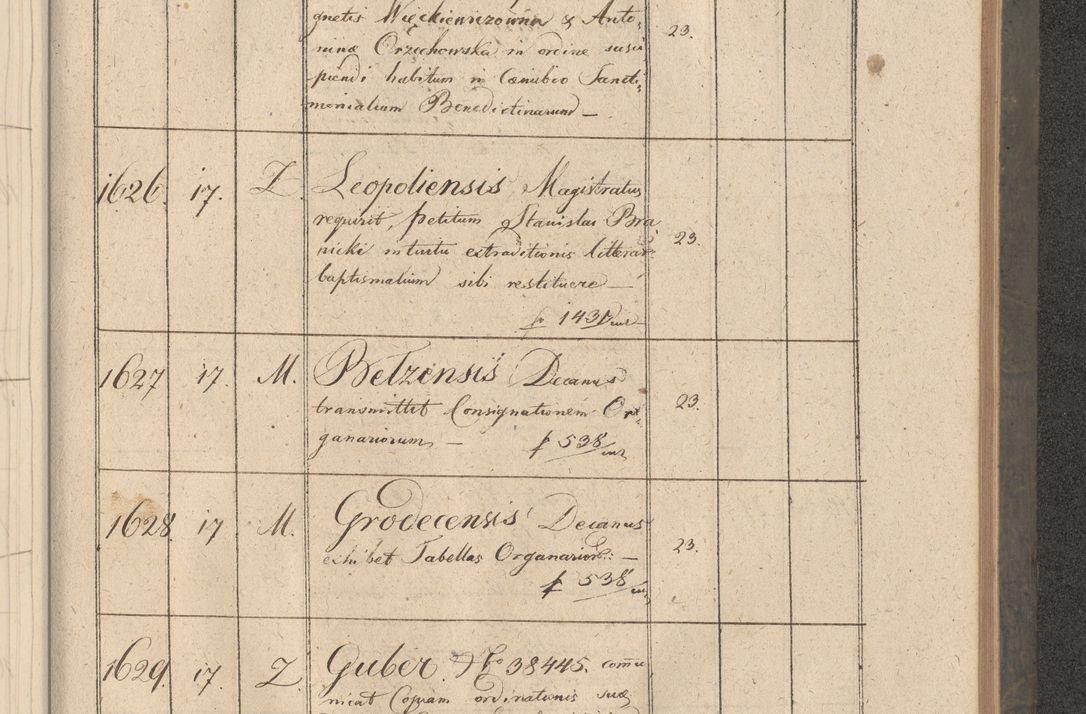 gnetis Więckiewiczówna & Anto: 23.
ninæ Orzechowska in ordine susci
piendi habitum in Cænubio Sancti:
monialium Benedictinarum —
1626. 17. Z. Leopoliensis Magistratus
requirit, petitum Stanislai Bra
nicki intuitu extraditionis litterar: 23.
baptismalium sibi restituere —
1627 17. M. Belzensis Decanus
transmittit Consignationem Or: 23.
ganariorum — f 538
1628. 17 M. Grodecensis Decanus
exhibet Tabellas Organarior: — 23.
f 538
1629. 17. Z. Guber. No 38445. comu
nicat Copiam ordinationis suæ